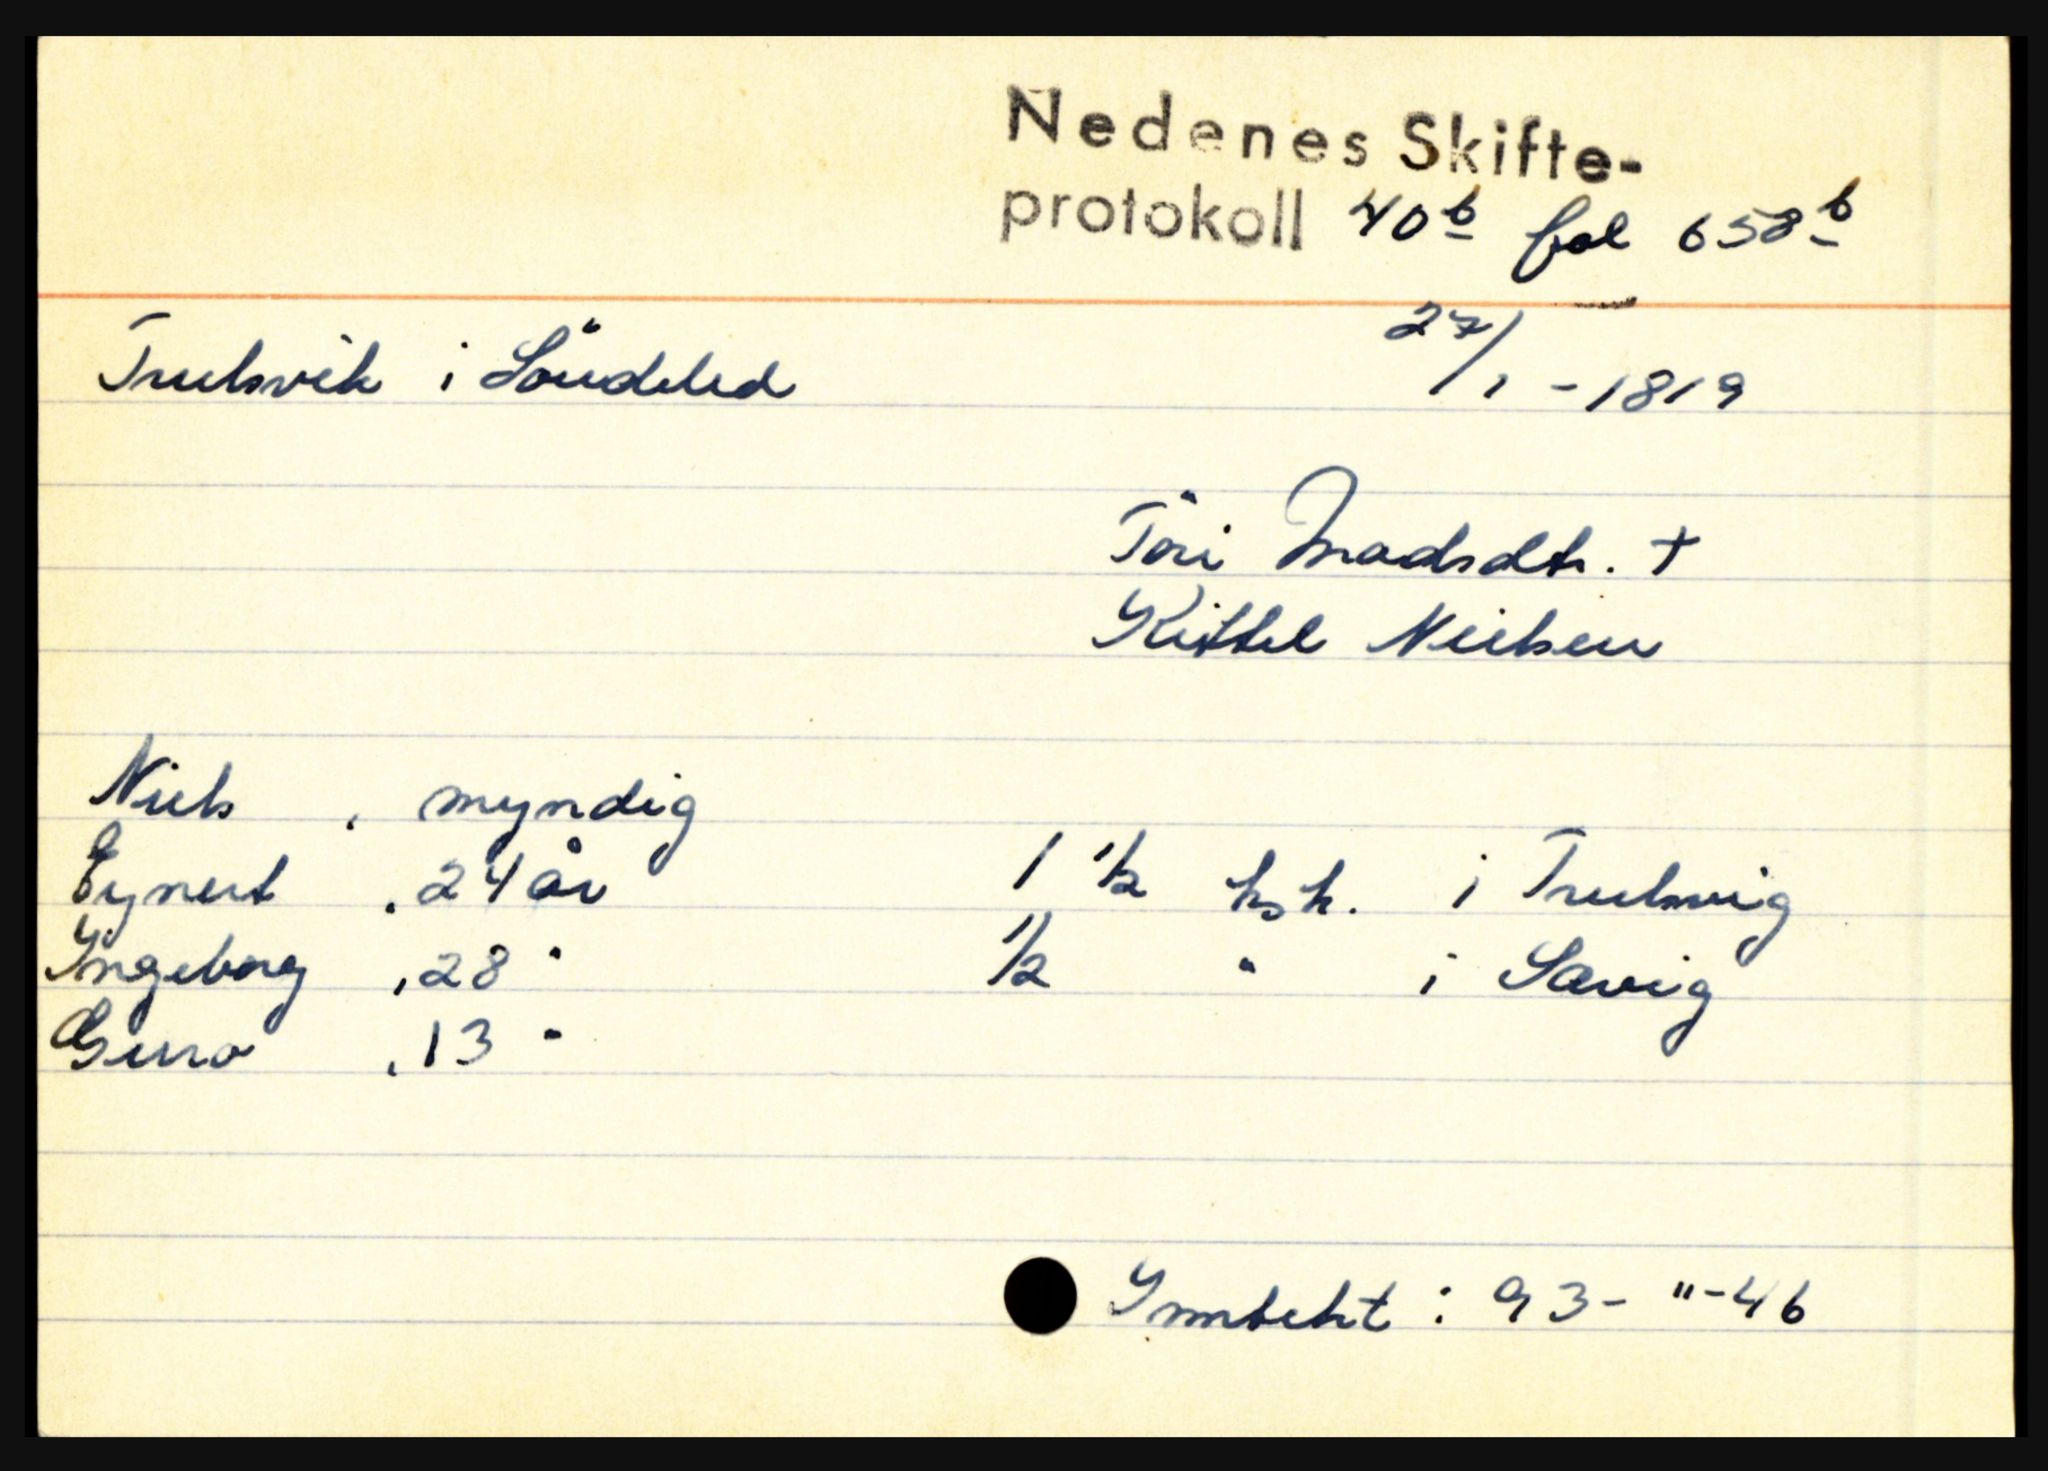 Nedenes Skifte-
protokoll 40b fol 658b
Trulsvik i Söndeled
27/1 - 1819
Töri Madsdtr. +
Kittel Nielsen
Niels , myndig
Eynert , 24 år
Yngeborg , 28 "
Guro , 13 "
1 1/2 hsh. i Trulsvig
1/2 " i Savig
Ynntekt : 93- "-46